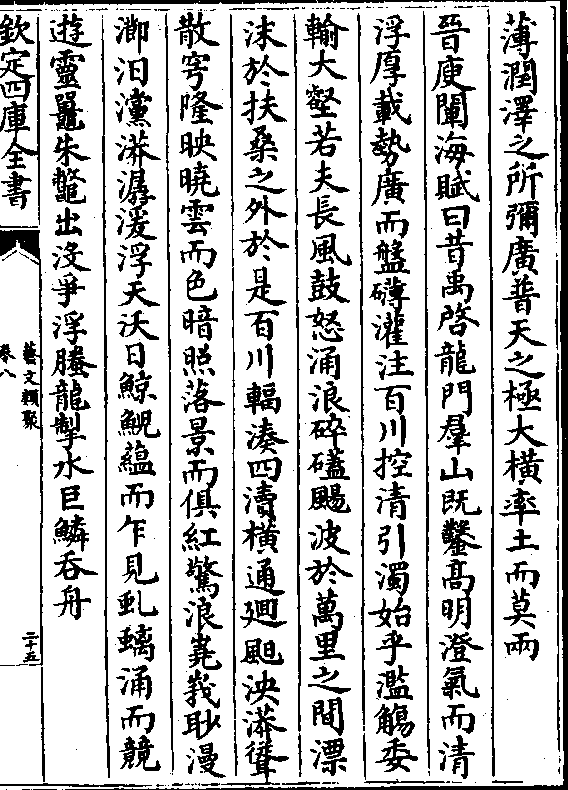 薄潤澤之所彌廣普天之極大橫率土而莫兩
晉庾闡海賦曰昔禹啓龍門羣山既鑿高明澄氣而清
浮厚載勢廣而盤礴灌注百川控清引濁始乎濫觴委
輸大壑若夫長風鼓怒涌浪碎礚颺波於萬里之間漂
沫於扶桑之外於是百川輻湊四瀆橫通廻𩗺泱漭聳
散穹隆映曉雲而色暗照落景而俱紅驚浪嶤峩眇漫
瀄汨瀇漭潺湲浮天沃日鯨鯢蘊而乍見虬螭涌而競
遊靈鼉朱鼈出沒爭浮騰龍掣水巨鱗吞舟
欽定四庫全書
藝文類聚
卷八
二十五